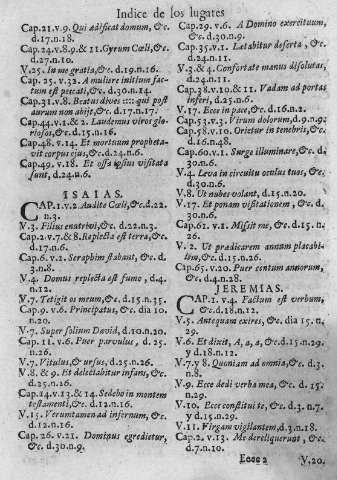 Indice de los lugares
Cap.21.v.9. Qui adificat domum, &c.
d.17.n.18.
Cap.24.v.8.9.& 11. Gyrum Cœli, &c.
d.27.n.10.
V.25. In me gratia, &c. d.19.n.16.
Cap.25.v.32. A muliere initium fac-
tum est peccati, &c. d.30.n.14.
Cap.31.v.8. Beatus dives :::: qui post
aurum non abijt, &c. d.17.n.17.
Cap.44.v.1.& 2. Laudemus viros glo-
riosos, &c. d.15.n.16.
Cap.48.v.14. Et mortuum propheta-
vit corpus ejus, &c. d.24.n.6.
Cap.49.v.18. Et ossa ipsius visitata
sunt, d.24.n.6.
ISAIAS.
CAP.1.v.2. Audite Cœli, &c. d.22.
n.3.
V.3. Filius enutrivi, &c. d.22.n.3.
Cap.2.v.7.& 8. Replecta est terra, &c.
d.17.n.6.
Cap.6.v.2. Seraphim stabant, &c. d.
3.n.8.
V.4. Domus replecta est fumo, d.4.
n.12.
V.7. Tetigit os meum, &c. d.15.n.35.
Cap.9.v.6. Principatus, &c. dia 10.
n.20.
V.7. Super solium David, d.10.n.20.
Cap.11.v.6. Puer parvulus, d.25.
n.26.
V.7. Vitulus, & ursus, d.25.n.26.
V.8.& 9. Et delectabitur infans, &c.
d.25.n.16.
Cap.14.v.13.& 14. Sedebo in montem
testamenti, &c. d.12.n.16.
V.15. Verumtamen ad infernum, &c.
d.12.n.16.
Cap.26.v.21. Dominus egredietur,
&c. d.30.n.9.
Cap.29.v.6. A Domino exercituum,
&c. d.30.n.9.
Cap.35.v.1. Lætabitur deserta, &c.
d.24.n.11.
V.3.& 4. Confortate manus dissolutas,
d.24.n.11.
Cap.38.v.10.& 11. Vadam ad portas
inferi, d.25.n.6.
V.17. Ecce in pace, &c. d.16.n.2.
Cap.53.v.3. Virum dolorum, d.9.n.9.
Cap.58.v.10. Orietur in tenebris, &c.
d.16.n.48.
Cap.60.v.1. Surge illuminare, &c. d.
30.n.6.
V.4. Leva in circuitu oculos tuos, &c.
d.30.n.6.
V.8. Ut nubes volant, d.15.n.20.
V.17. Et ponam visitationem, &c. d.
30.n.6.
Cap.61.v.1. Missit me, &c. d.15.n.
26.
V.2. Ut prædicarem annum placabi-
lem, &c. d.15.n.26.
Cap.65.v.20. Puer centum annorum,
&c. d.4.n.28.
JEREMIAS.
CAP.1.v.4. Factum est verbum,
&c. d.18.n.12.
V.5. Antequam exires, &c. dia 15.n.
29.
V.6. Et dixit, A, a, a, &c. d.15.n.29.
y d.18.n.12.
V.7.y 8. Quoniam ad omnia, &c. d.3.
n.8.
V.9. Ecce dedi verba mea, &c. d.15.
n.29.
V.10. Ecce constitui te, &c. d.3.n.7.
y d.15.n.29.
V.11. Virgam vigilantem, d.3.n.18.
Cap.2.v.13. Me dereliquerunt, &c.
d.7.n.10.
Eccc 2
V.20.